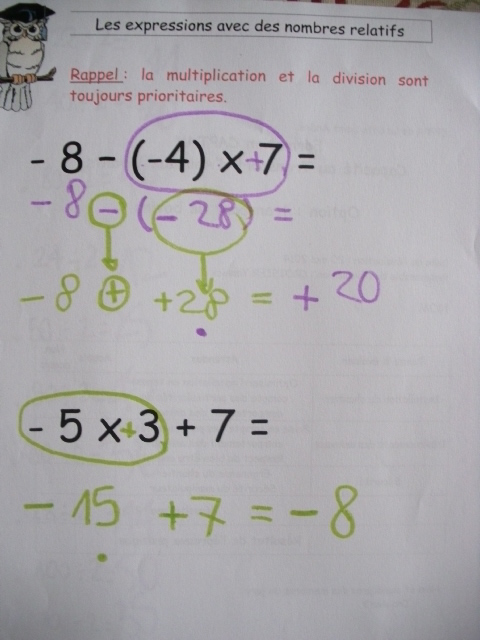 Les expressions avec des nombres relatifs
Rappel : la multiplication et la division sont
toujours prioritaires.
- 8 - (-4) x +7 =
- 8 - (- 28) =
- 8 + +28 = + 20
- 5 x +3 + 7 =
- 15 +7 = - 8